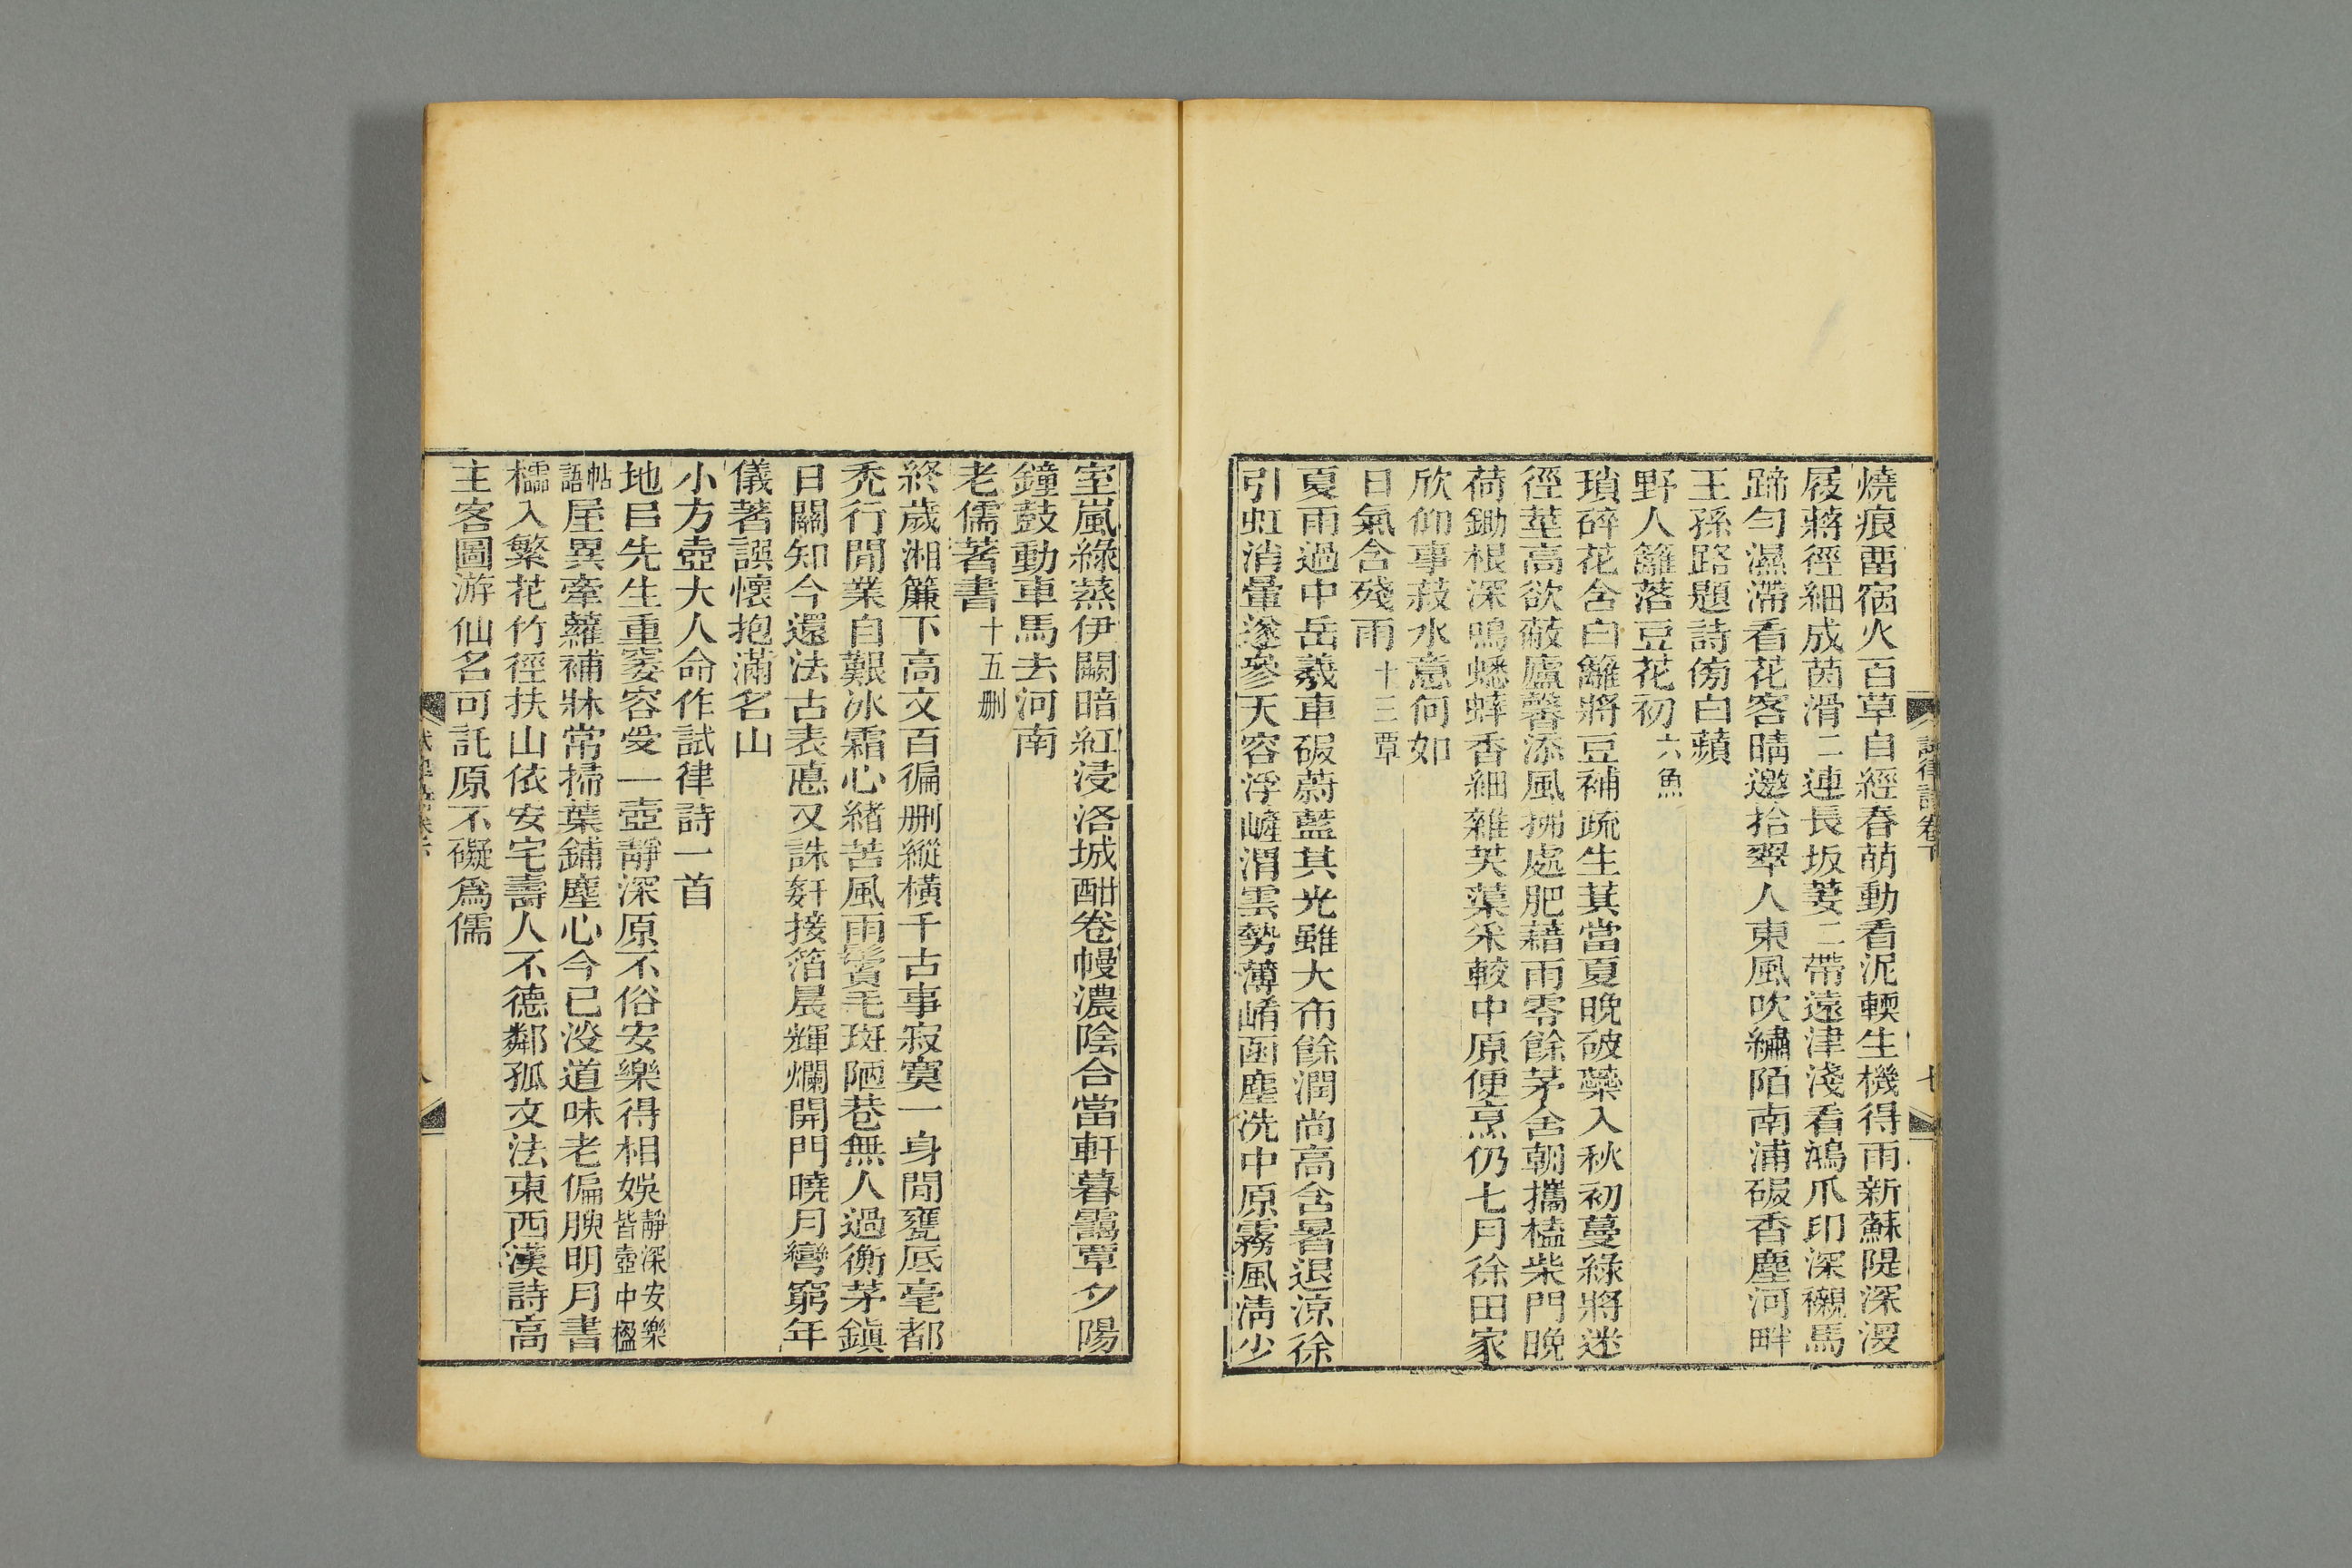 燒痕畱宿火百草自經春萌動看泥輭生機得雨新蘇隄深漫
屐蔣徑細成茵滑二連長坂萋二帶遠津淺看鴻爪印深襯馬
蹄勻濕滯看花客晴邀拾翠人東風吹繡陌南浦碾香塵河畔
王孫路題詩傍白蘋
野人籬落豆花初六魚
瑣碎花含白籬將豆補疏生萁當夏晚破藥入秋初蔓綠將迷
徑莖高欲蔽廬馨添風拂處肥藉雨零餘茅舍朝攜榼柴門晚
荷鋤根深鳴蟋蟀香細雜芙蕖釆較中原便烹仍七月徐田家
欣仰事菽水意何如
日氣含殘雨十三覃
夏雨過中岳羲車碾蔚藍其光雖大布餘潤尚高含暑退涼徐
引虹消暈遂參天容浮嶻渭雲勢薄崤函塵洗中原霧風淸少
室嵐綠蒸伊闕暗紅浸洛城酣卷幔濃陰合當軒暮靄覃夕陽
鐘鼓動車馬去河南
老儒著書十五删
終歲湘簾下高文百徧删縱橫千古事寂寞一身閒甕底毫都
秃行間業自艱冰霜心緒苦風雨鬢毛斑陋巷無人過衡茅鎭
日關知今還法古表悳又誅奸接箔晨輝爛開門曉月彎窮年
儀著譔懷抱滿名山
小方壺大人命作試律詩一首
地㠯先生重窔容受一壺靜深原不俗安樂得相娛靜深安樂皆壺中楹
帖語屋異牽蘿補牀常掃葉鋪塵心今已沒道味老偏腴明月書
櫺入繁花竹徑扶山依安宅壽人不德鄰孤文法東西漢詩高
主客圖游仙名可託原不礙爲儒